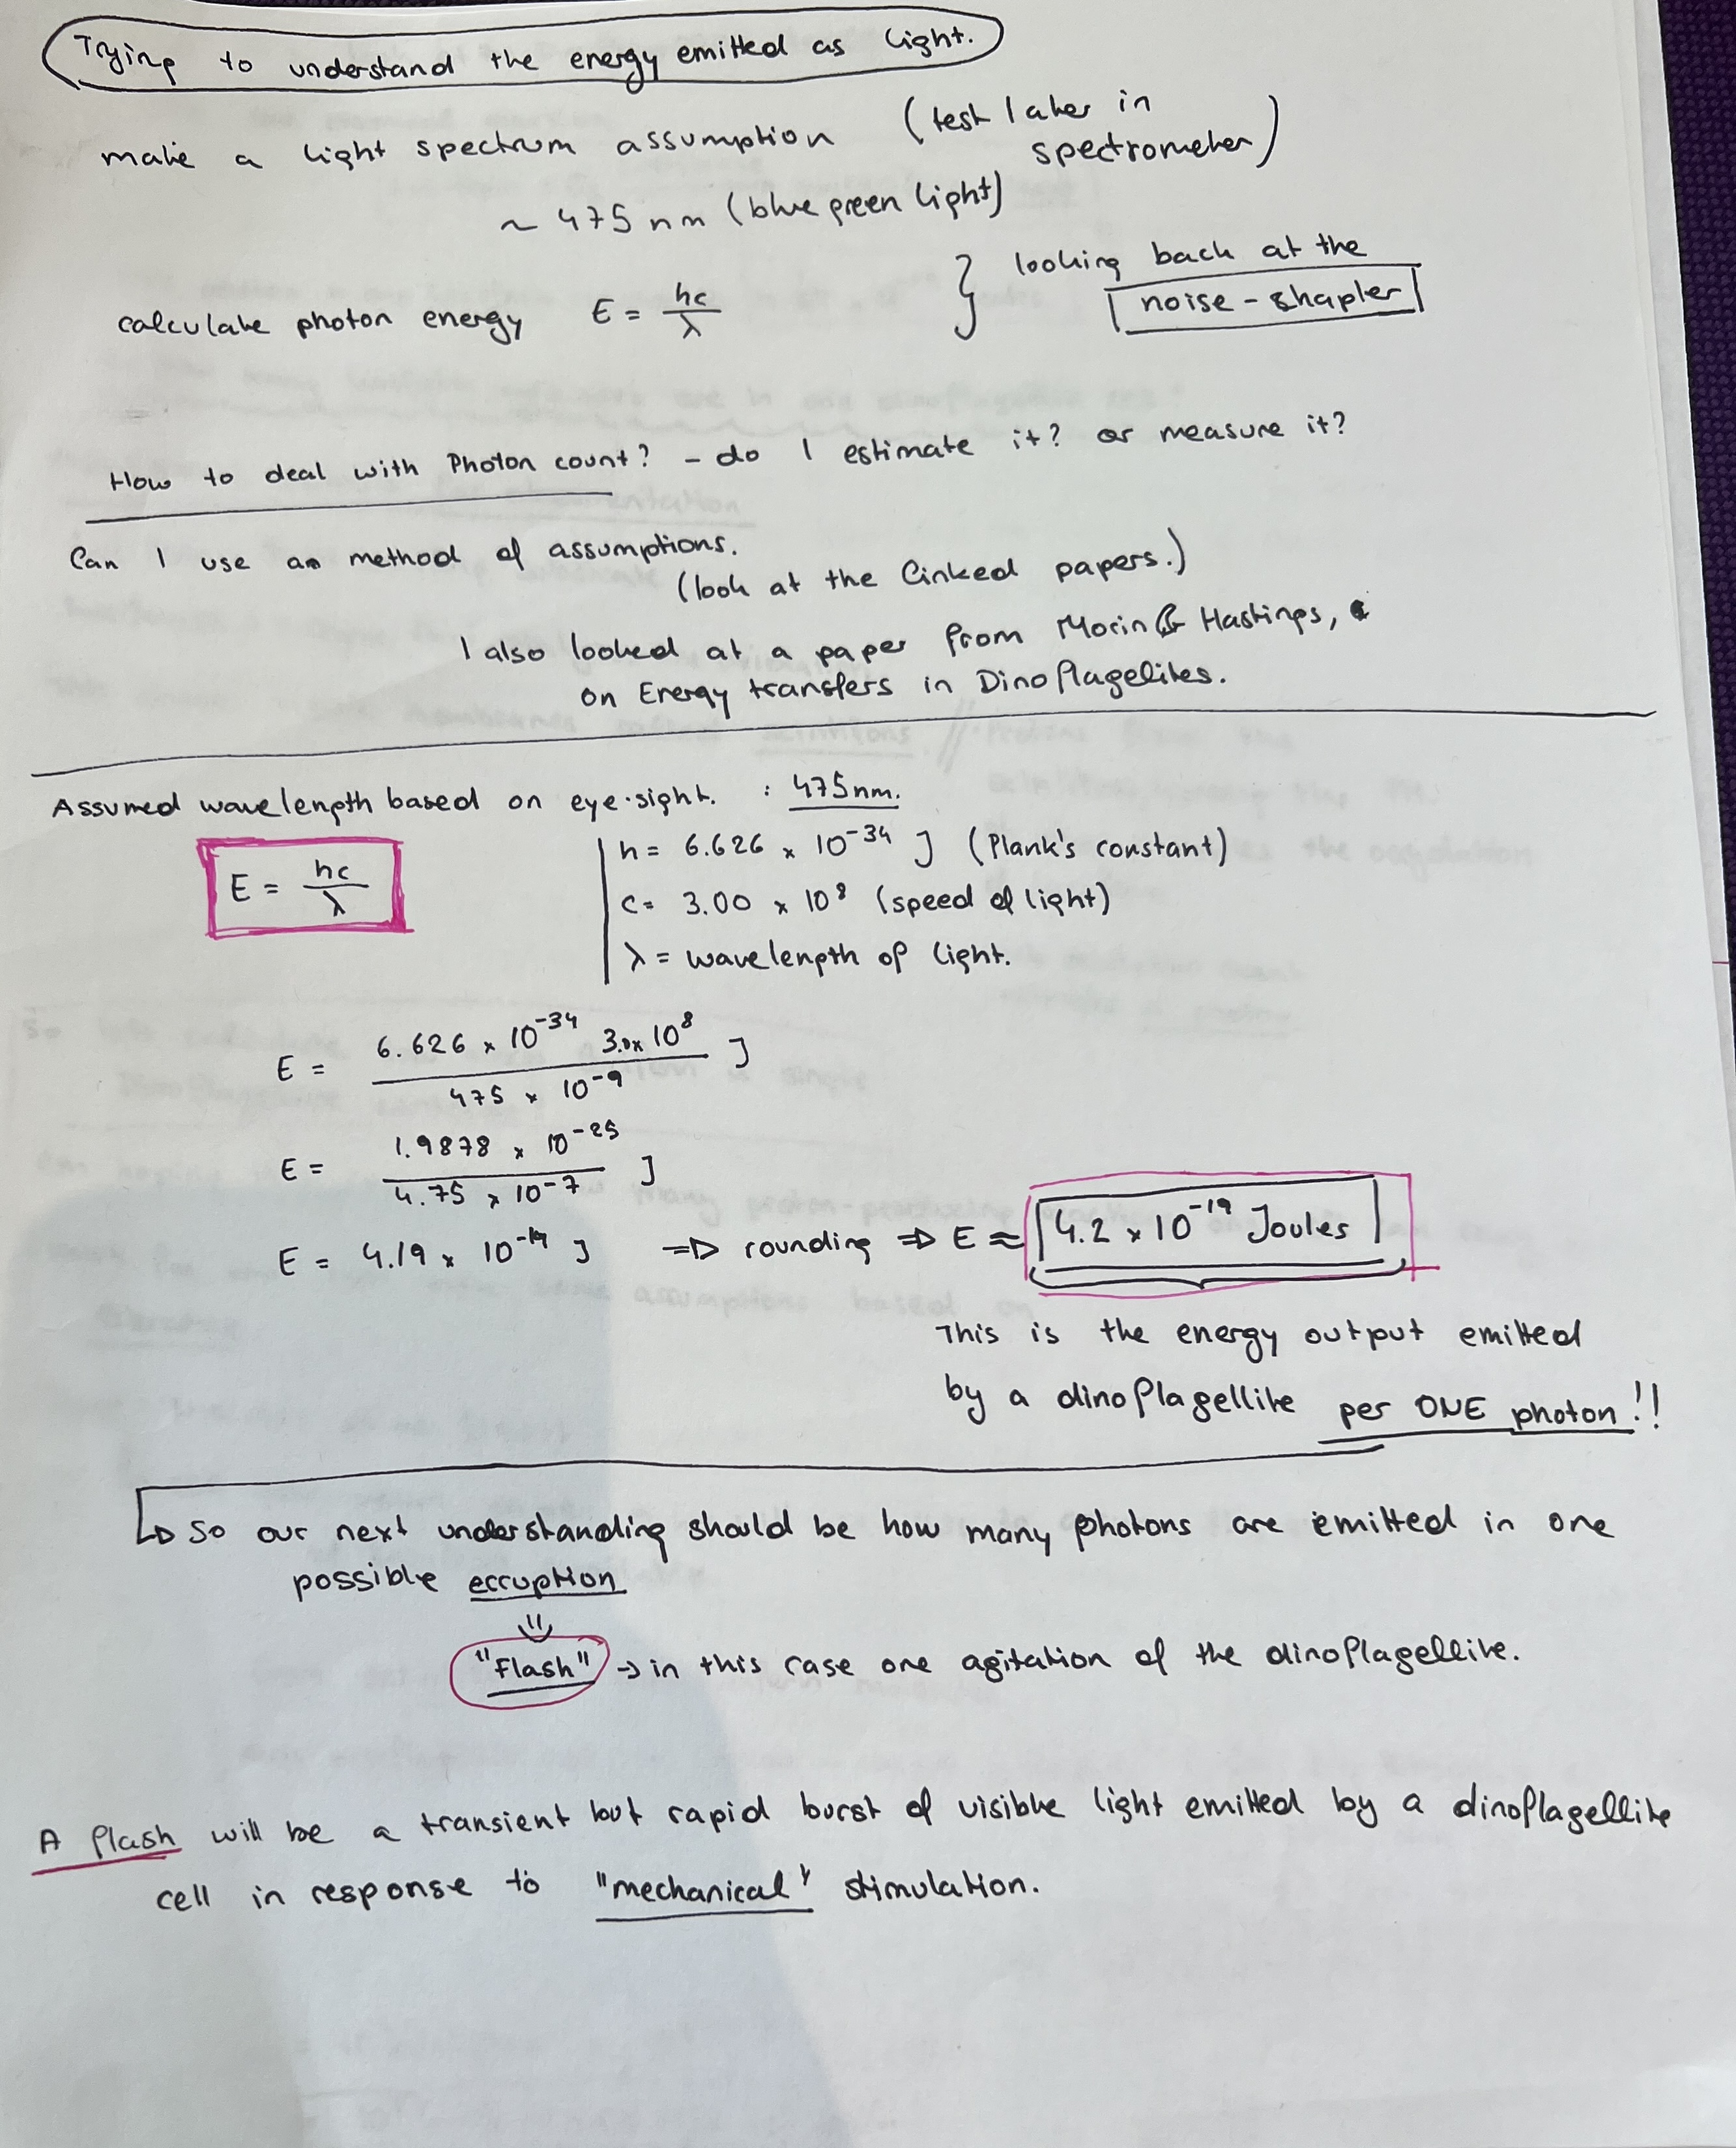 Trying to understand the energy emitted as light.
make a light spectrum assumption (test later in
spectrometer)
~ 475 nm (blue green light)
looking back at the
calculate photon energy E = hc/λ } noise - shapter
How to deal with Photon count? - do I estimate it? or measure it?
Can I use an method of assumptions.
(look at the linked papers.)
I also looked at a paper from Morin & Hastings,
on Energy transfers in Dinoflagelites.
Assumed wavelength based on eye-sight. : 475nm.
E = hc/λ
h = 6.626 × 10⁻³⁴ J (Plank's constant)
c = 3.00 × 10⁸ (speed of light)
λ = wavelength of light.
E = 6.626 × 10⁻³⁴ 3.0× 10⁸ / 475 × 10⁻⁹ J
E = 1.9878 × 10⁻²⁵ / 4.75 × 10⁻⁷ J
E = 4.19 × 10⁻¹⁹ J ⇒ rounding ⇒ E ≈ 4.2 × 10⁻¹⁹ Joules
This is the energy output emitted
by a dinoflagellite per ONE photon!!
↳ so our next understanding should be how many photons are emitted in one
possible erruption
"Flash" → in this case one agitation of the dinoflagellite.
A flash will be a transient but rapid burst of visible light emitted by a dinoflagellite
cell in response to "mechanical" stimulation.